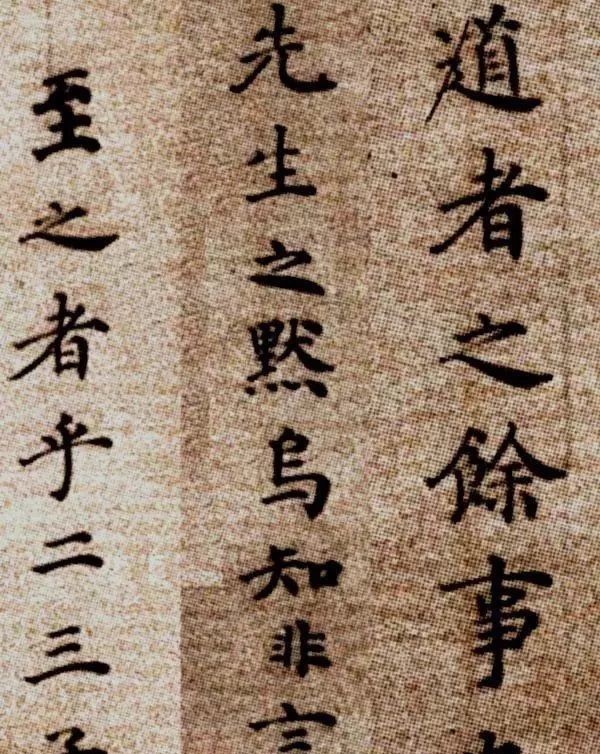 道者之餘事
先生之默烏知非言
至之者乎二三子